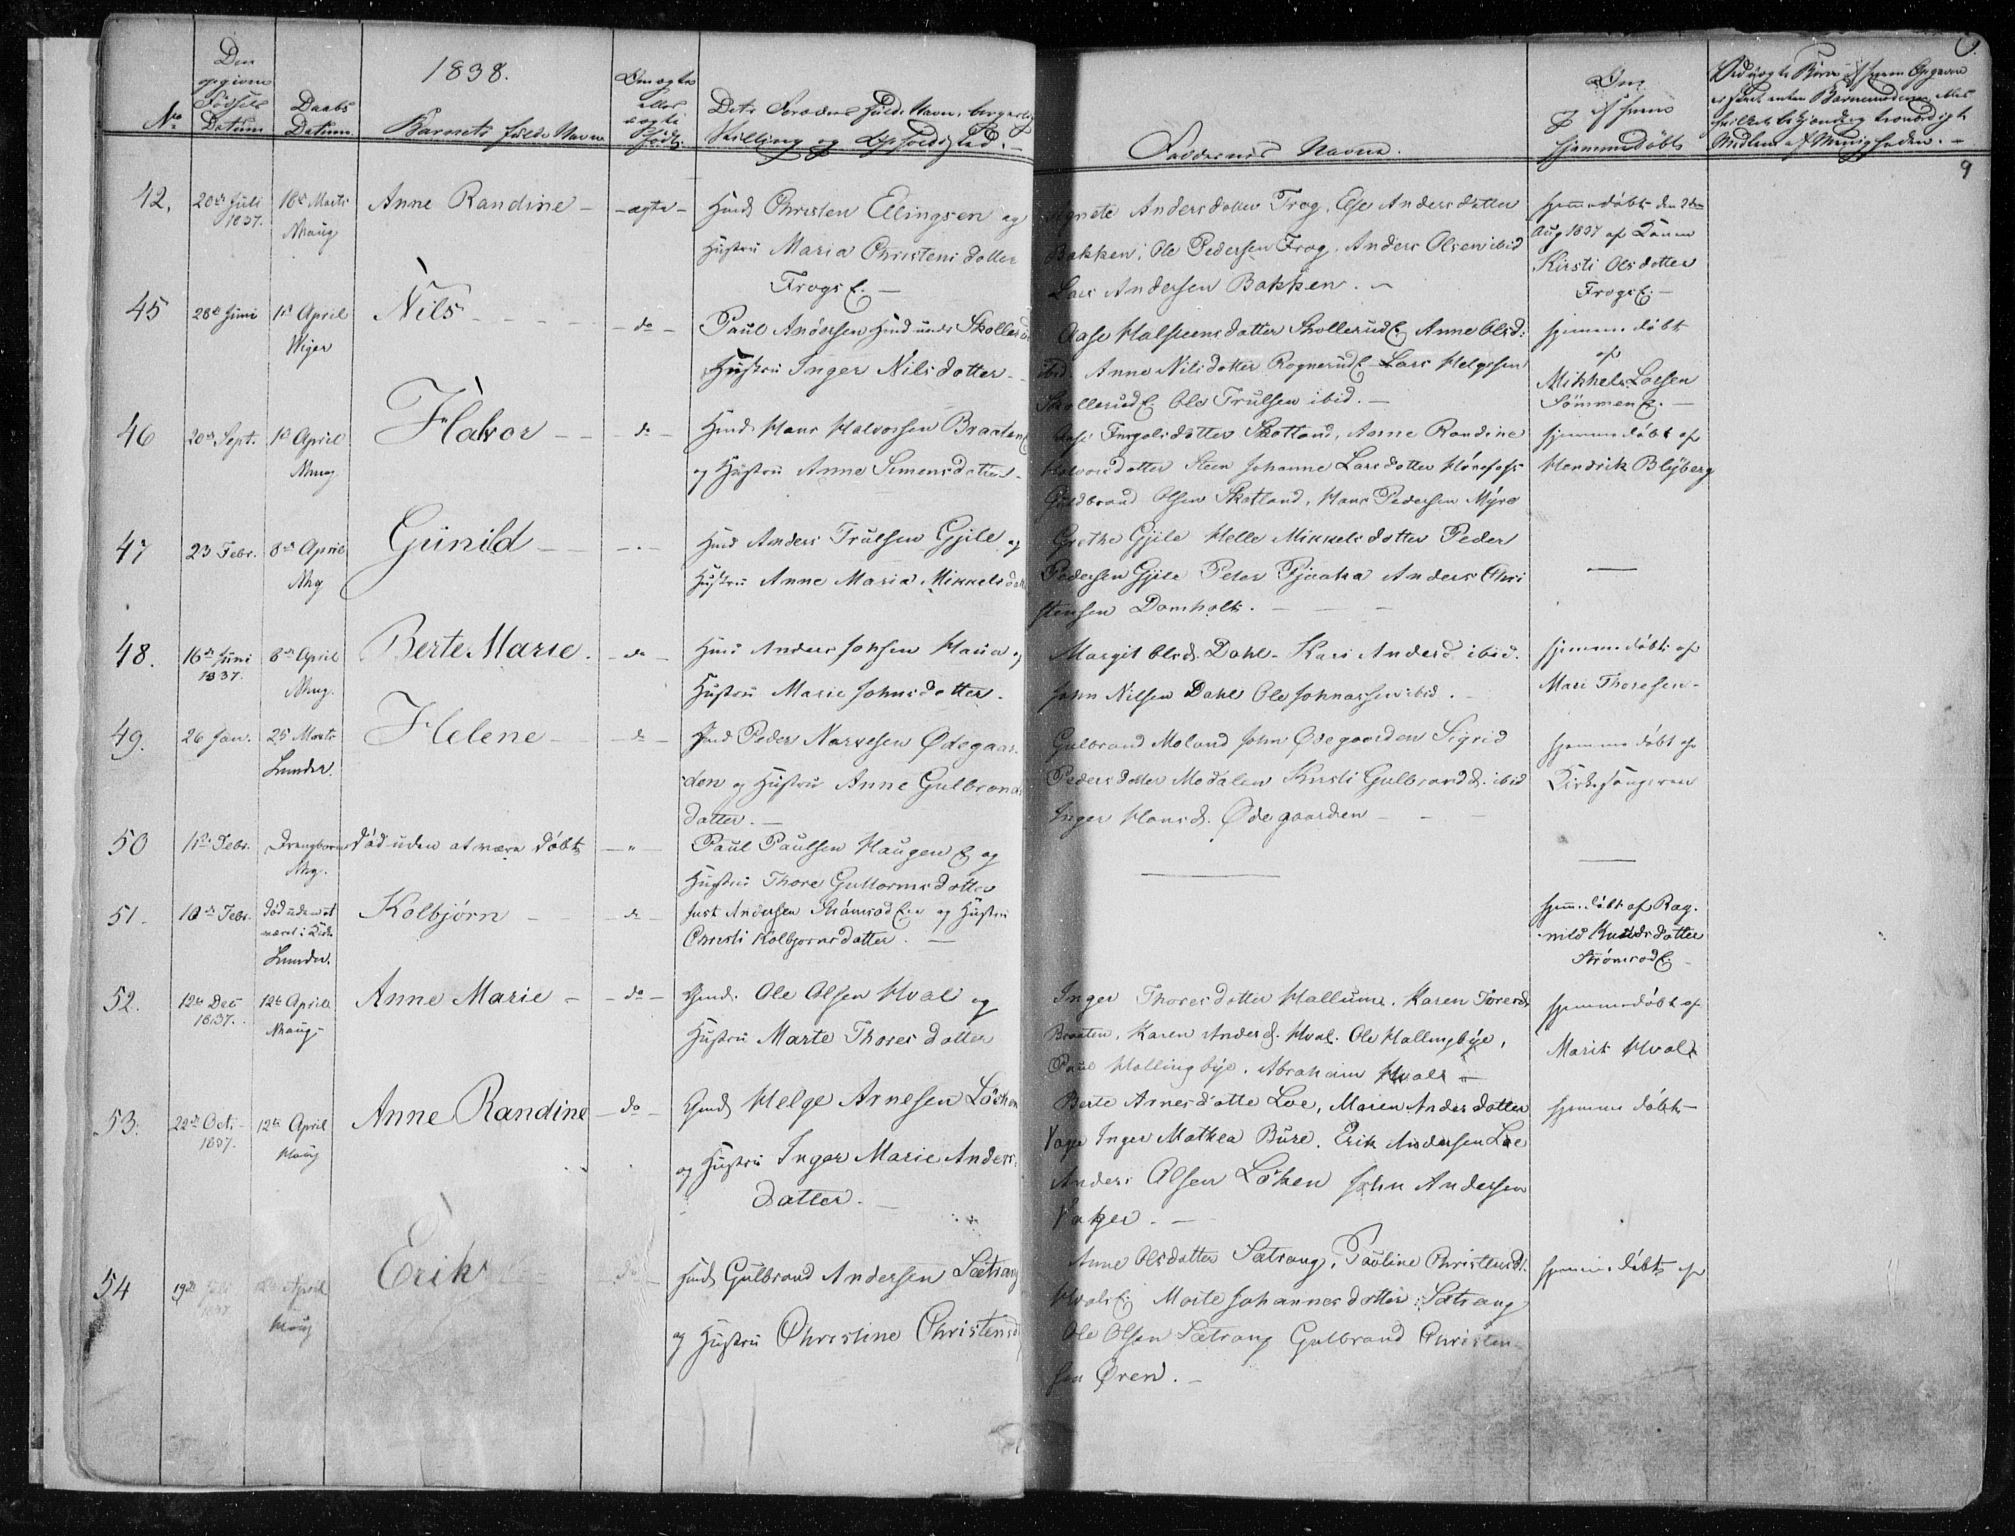 1838.
No
Den opgivne Fødsels Datum
Daabs Datum
Barnets fulde Navn
Om ægte eller uægte født.
Dets Forældres fulde Navn, borgerlig
Stilling og Opholdssted.
Faddernes Navne.
Om og af hvem hjemmedøbt
9
42. 20de Juli 1837. 18de Marts Nhaug Anne Randine - ægte -
Huusmd Christen Ellingsen og
Hustru Maria Christensdatter
Frogs E. -
Agnete Andersdatter Frog, Else Andersdatter
Bakken, Ole Pedersen Frog, Anders Olsen ibid
Lars Andersen Bakken. -
Hjemmedøbt den 2den
Aug 1837 af Konen
Kirsti Olsdatter
Frogs E. -
45 28de Juni 1ste April Viger Nils - do -
Paul Andersen Huusmd under Skollerud
Hustru Inger Nilsdatter -
Aase Halsteensdatter Skollerud E. Anne Olsd:
ibid. Anne Nilsdatter Rognerud E. Lars Helgesen
Skollerud E. Ole Trulsen ibid. -
hjemmedøbt
af
Mikkel Larsen
Sømmen E. -
46 20de Sept. 1ste April Nhaug Halvor - do -
Huusmd Hans Halvorsen Braaten E.
og Hustru Anne Simensdatter -
Skotland, Anne Randine
Halvorsdatter Steen Johanne Larsdatter Hønefos
Guldbrand Olsen Skotland, Hans Pedersen Myre
hjemmedøbt af
Hendrik Blyberg
47 23 Febr. 8de April Nhg Gunild - - -
Huusmd Anders Trulsen Gjile og
Hustru Anne Maria Mikkelsdatter
Grethe Gjile Helle Mikkelsdatter Peder
Pedersen Gjile Peter Anders Chri
stensen Domholt. -
48. 16de Juni 1837. 8de April Nhaug. Berte Marie. - do -
Huusmd Anders Johsen Haua og
Hustru Marie Johnsdatter.
Margit Olsd. Dahl - Kari Andersd. ibid.
John Nilsen Dahl Ole Johnassen ibid.
hjemmedøbt af
Mari Thoresen -
49. 26 Jan. 25 Marts Lunder. Helene - do -
Huusmd Peder Narvesen Ødegaar
den og Hustru Anne Gulbrands
datter. -
Gulbrand Moland John Ødegaarden Sigrid
Pedersdatter Modalen Kirsti Gulbrandsd. ibid
Inger Hansd. Ødegaarden -
hjemmedøbt af
Kirkesangeren
50 1ste Febr. Drengbarn Nhg. død uden at være døbt - " -
Paul Paulsen Haugen E og
Hustru Thore Guttormsdatter
51. 10de Febr. død uden at været i Kirke Lunder. Kolbjørn - do -
Just Andersen Strømsod E. og Hustru
Christi Kolbjørnsdatter. -
hjemmedøbt af Rag-
nild Knudsdatter
Strømsod E.
52. 12te Dec 1837. 12te April Nhaug - Anne Marie - do -
Huusmd. Ole Olsen Hval og
Hustru Marte Thoresdatter
Inger Thoresdatter Hallum, Karen Toresd
Braaten, Karen Andersd. Hval. Ole Hallingbye,
Paul Hallingbye, Abraham Hval -
hjemmedøbt af
Marit Hval
53. 22de Oct. 1837. 12te April Nhaug Anne Randine - do -
Huusmd Helge Arnesen Løken
og Hustru Inger Marie Anders
datter. -
Berte Arnesdatter Loe, Maren Andersdatter
Vager Inger Mathea Bure, Erik Andersen Loe
Anders Olsen Løken John Andersen
Vager. -
hjemmedøbt -
54 19de Juli 1837 12te April Nhaug Erik - do -
Huusmd Gulbrand Andersen Sætrang
og Hustru Christine Christensd
Anne Olsdatter Sætrang, Pauline Christensd.
Hvals E. Marte Johannesdatter Sætrang
Ole Olsen Sætrang Gulbrand Christen
sen Øren. -
hjemmedøbt af